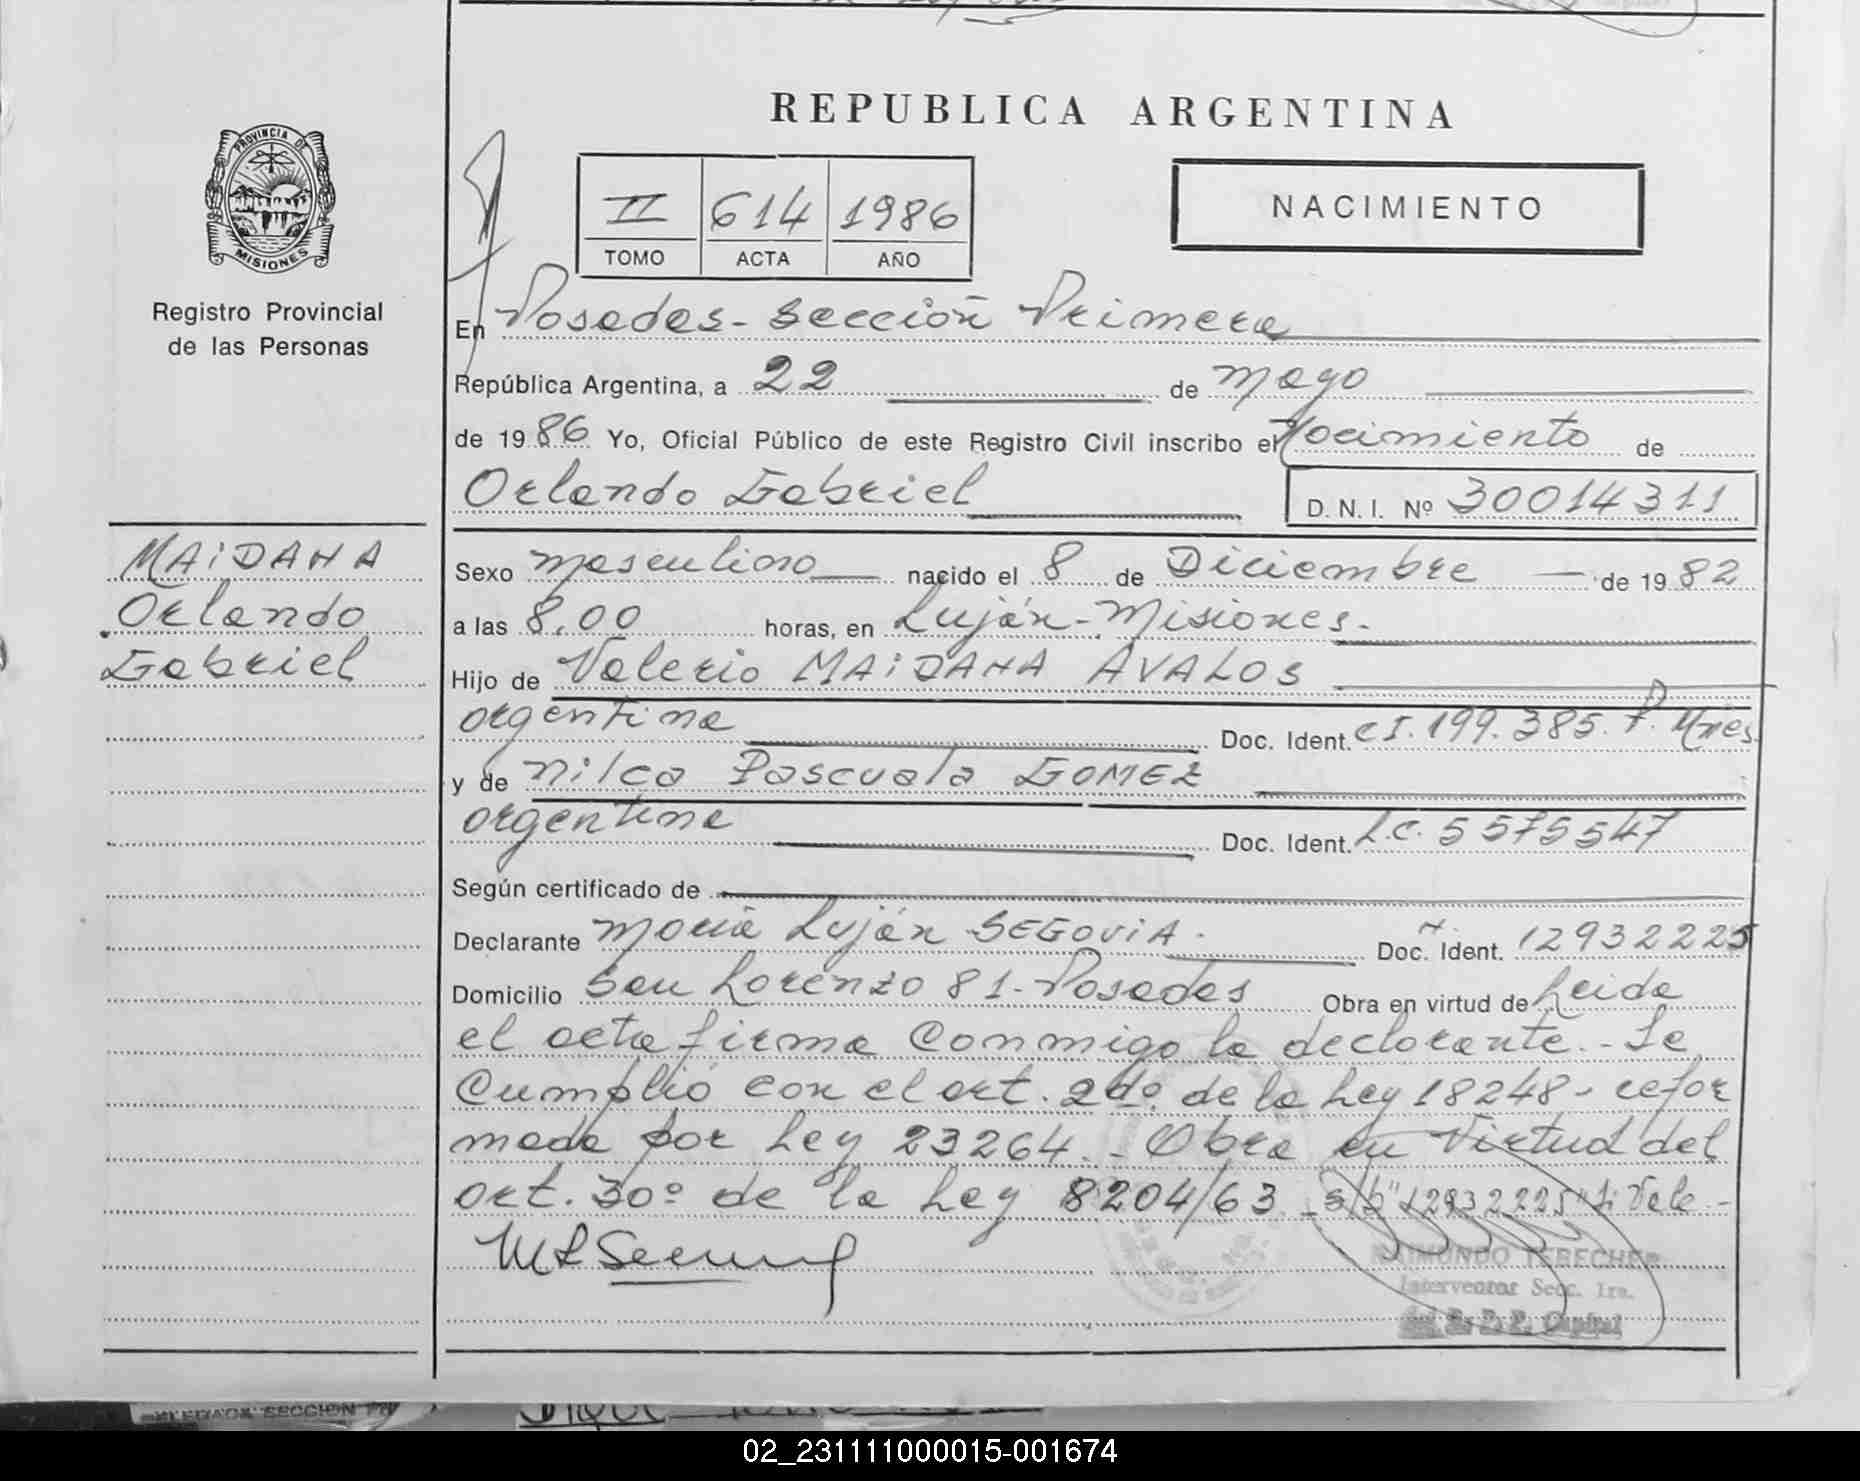 REPUBLICA ARGENTINA
PROVINCIA DE
MISIONES
Registro Provincial
de las Personas
II 614 1986
TOMO ACTA AÑO
NACIMIENTO
En Posadas - Sección Primera
República Argentina, a 22 de mayo
de 1986 Yo, Oficial Público de este Registro Civil inscribo el Nacimiento de
Orlando Gabriel
D. N. I. Nº 30014311
MAiDANA
Orlando
Gabriel
Sexo masculino nacido el 8 de Diciembre de 1982
a las 8,00 horas, en Luján - Misiones.
Hijo de Valerio MAiDANA AVALOS
argentina Doc. Ident. C I. 199.385. P. Mnes
y de Nilca Pascuala GOMEZ
argentina Doc. Ident. L.C. 5575547
Según certificado de
Declarante María Luján SEGOViA. Doc. Ident. 12932225
Domicilio San Lorenzo 81 - Posadas Obra en virtud de Leida
el acta firma conmigo la declarante. - Se
cumplió con el art. 2do. de la Ley 18248 - refor
mada por Ley 23264. - Obra en virtud del
art. 30º de la Ley 8204/63 s/b "12932225" Vale -
RAIMUNDO TEBECHER
Interventor Secc. 1ra.
del R. P. P. Capital
SECCION
02_231111000015-001674